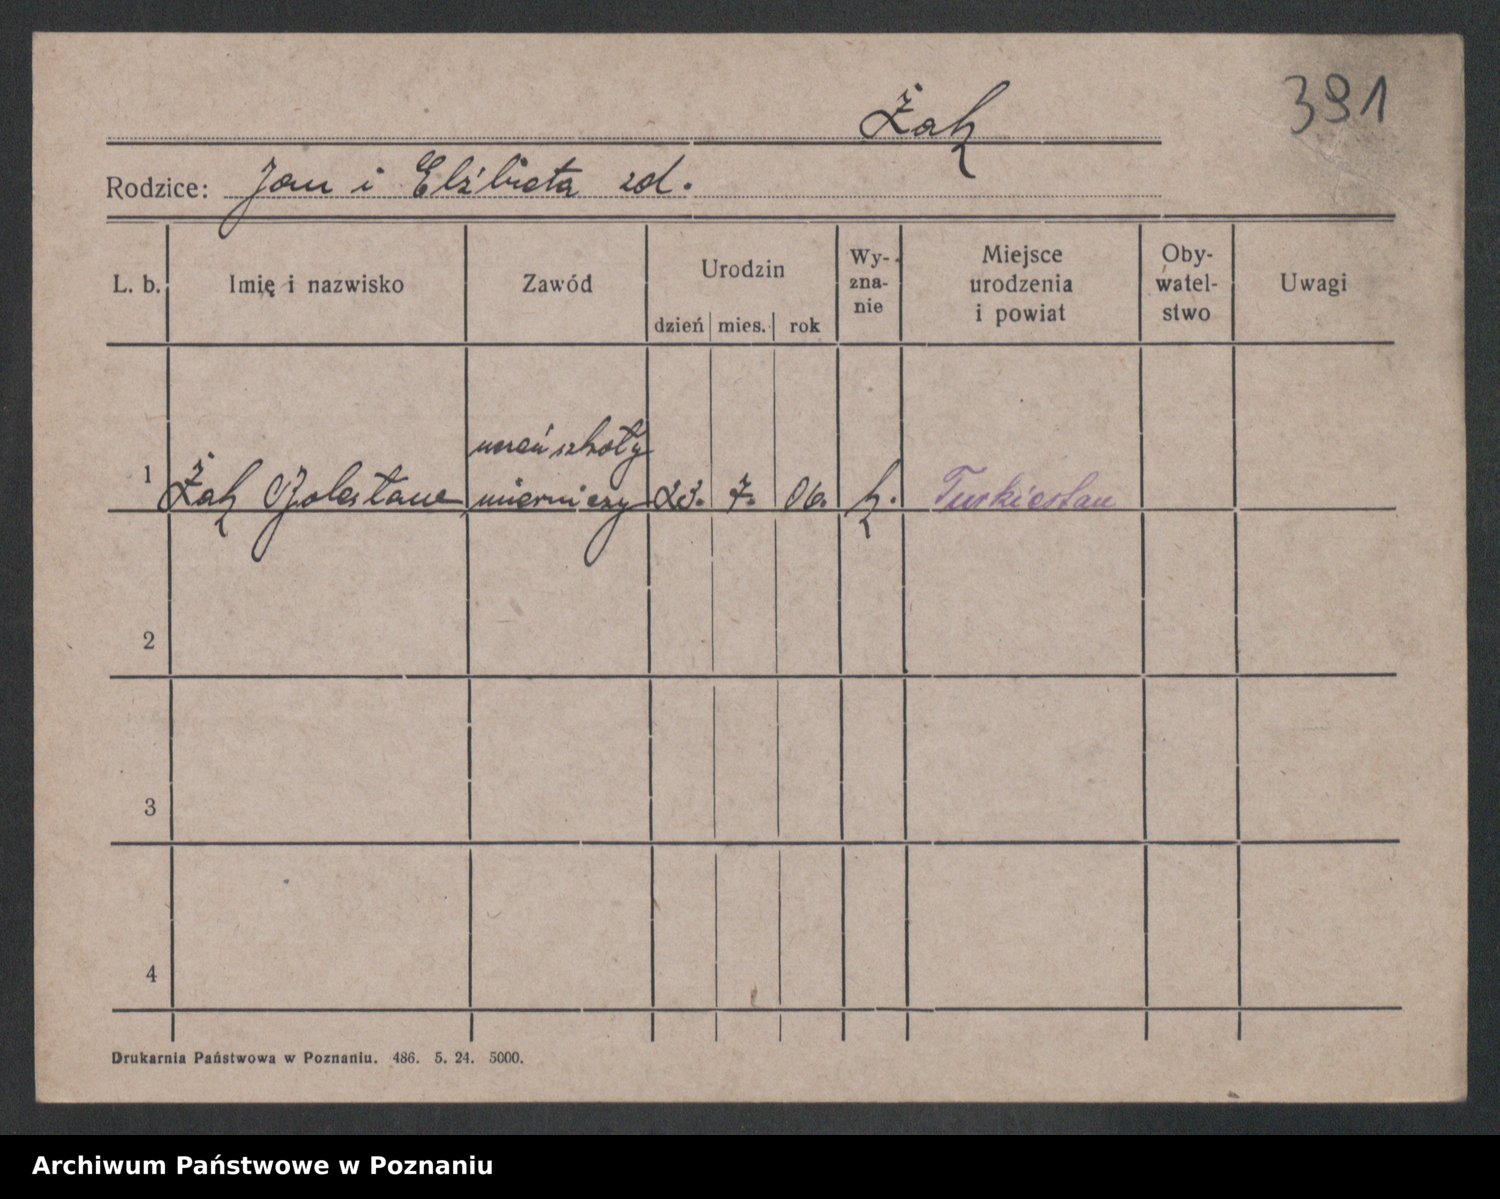 391
Żak
Rodzice: Jan i Elżbieta zd.
L. b. Imię i nazwisko Zawód Urodzin Wy-zna-nie Miejsce urodzenia i powiat Oby-watel-stwo Uwagi
dzień mies. rok
uczeń szkoły
1 Żak mierniczy 23. 7. 06. k. Turkiestan
2
3
4
Drukarnia Państwowa w Poznaniu. 486. 5. 24. 5000.
Archiwum Państwowe w Poznaniu